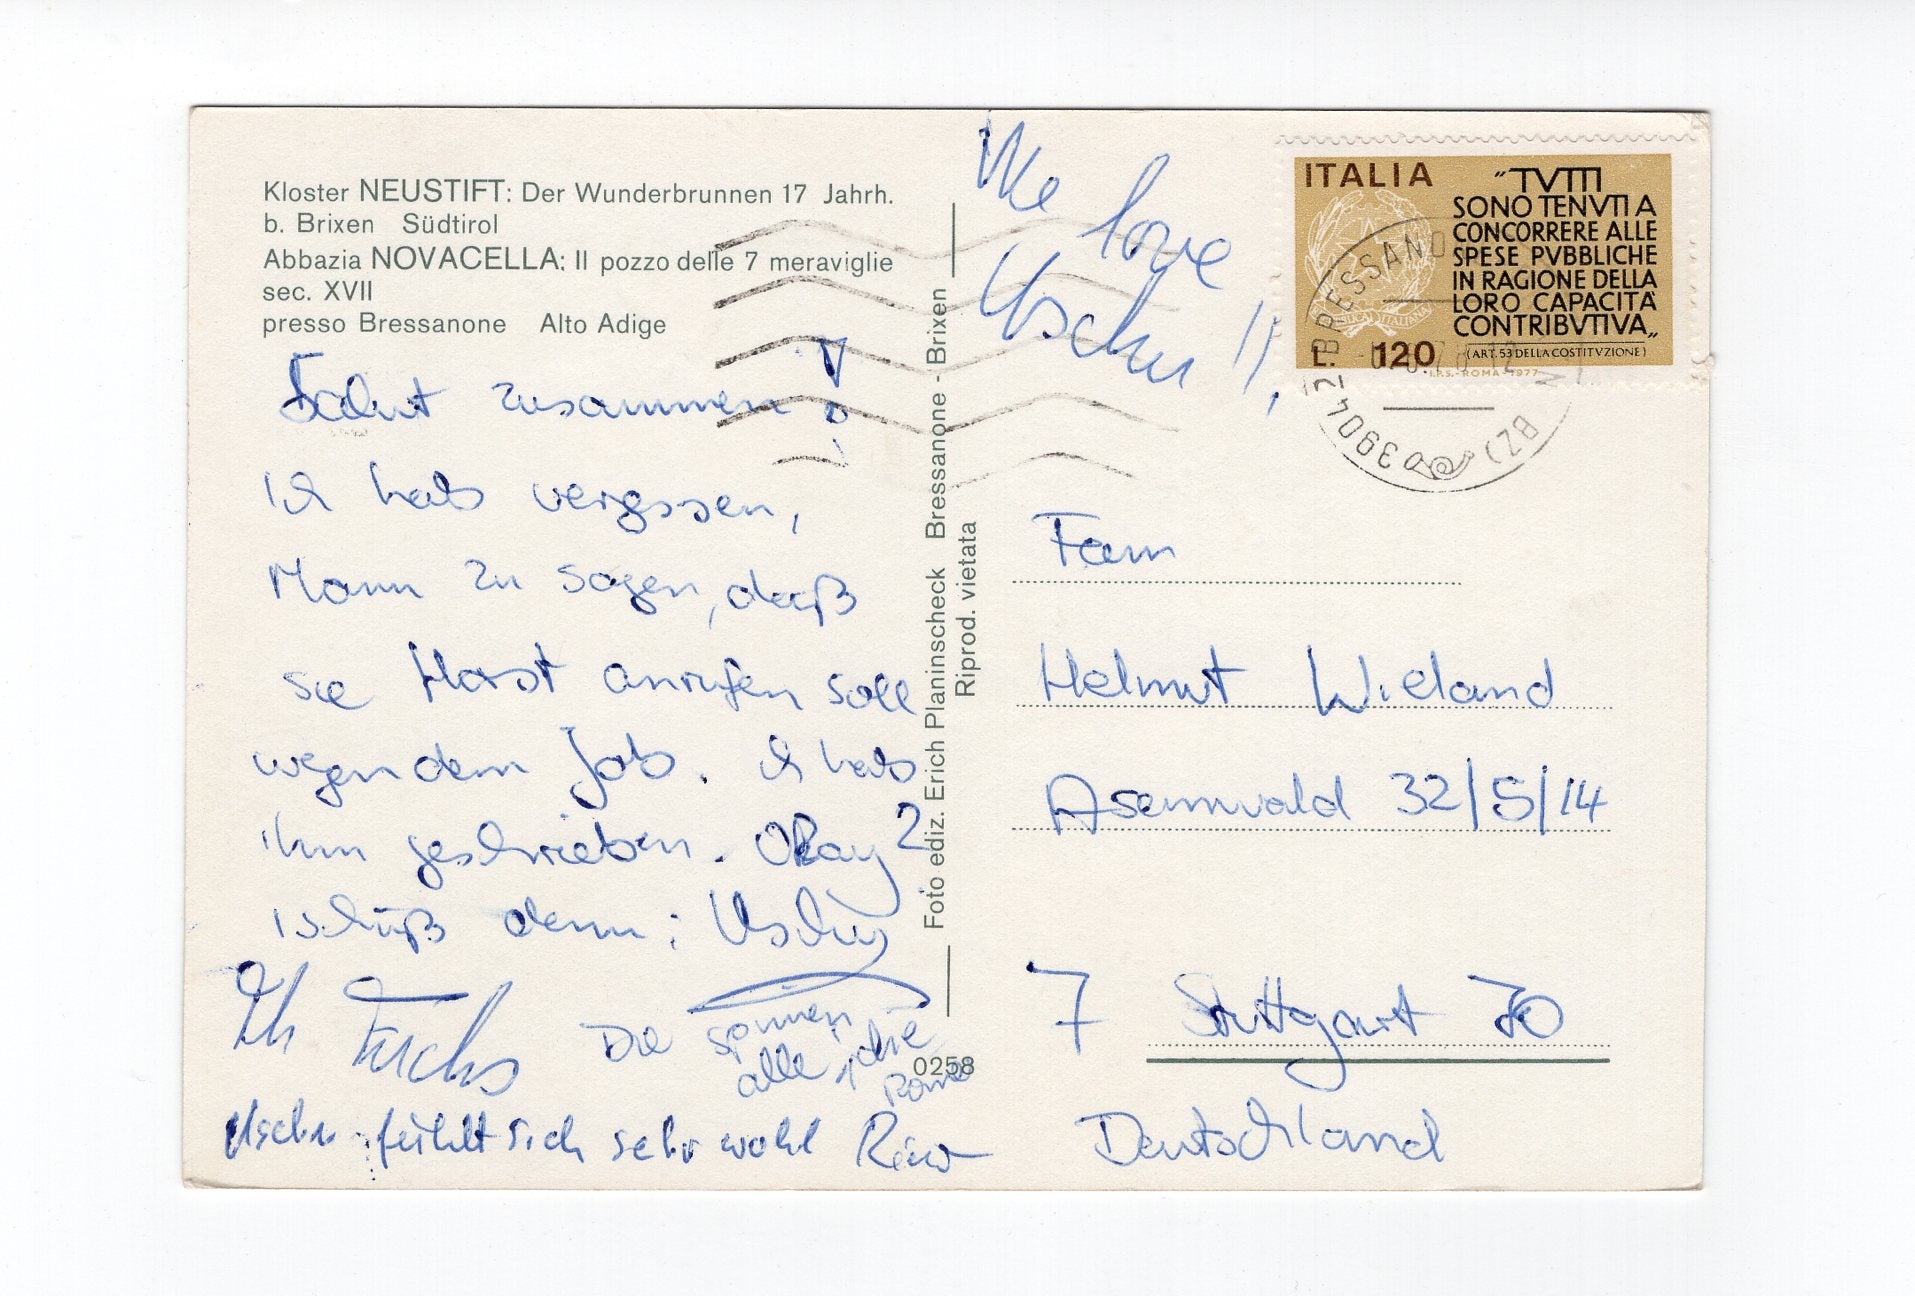 Kloster NEUSTIFT: Der Wunderbrunnen 17 Jahrh.
b. Brixen Südtirol
Abbazia NOVACELLA: Il pozzo delle 7 meraviglie
sec. XVII
presso Bressanone Alto Adige
Salut zusammen!
Ich hab vergssen,
Mann zu sagen, daß
sie Horst anrufen soll
wegen dem Job. Ich hab
ihm geschrieben. Okay?
Tschüß denn: Uschy
Eh Fuchs
Die spinnen
alle, ohne
Uschi fühlt sich sehr wohl
Foto ediz. Erich Planinscheck Bressanone - Brixen
Riprod. vietata
0258
We love
Uschi !!
ITALIA
"TVTTI
SONO TENVTI A
CONCORRERE ALLE
SPESE PVBBLICHE
IN RAGIONE DELLA
LORO CAPACITÀ
CONTRIBVTIVA„
(ART. 53 DELLA COSTITVZIONE)
L. 120
I.P.S.-ROMA-1977
39042 BRESSANONE (BZ)
Fam
Helmut Wieland
Asemwald 32/5/14
7 Stuttgart 70
Deutschland